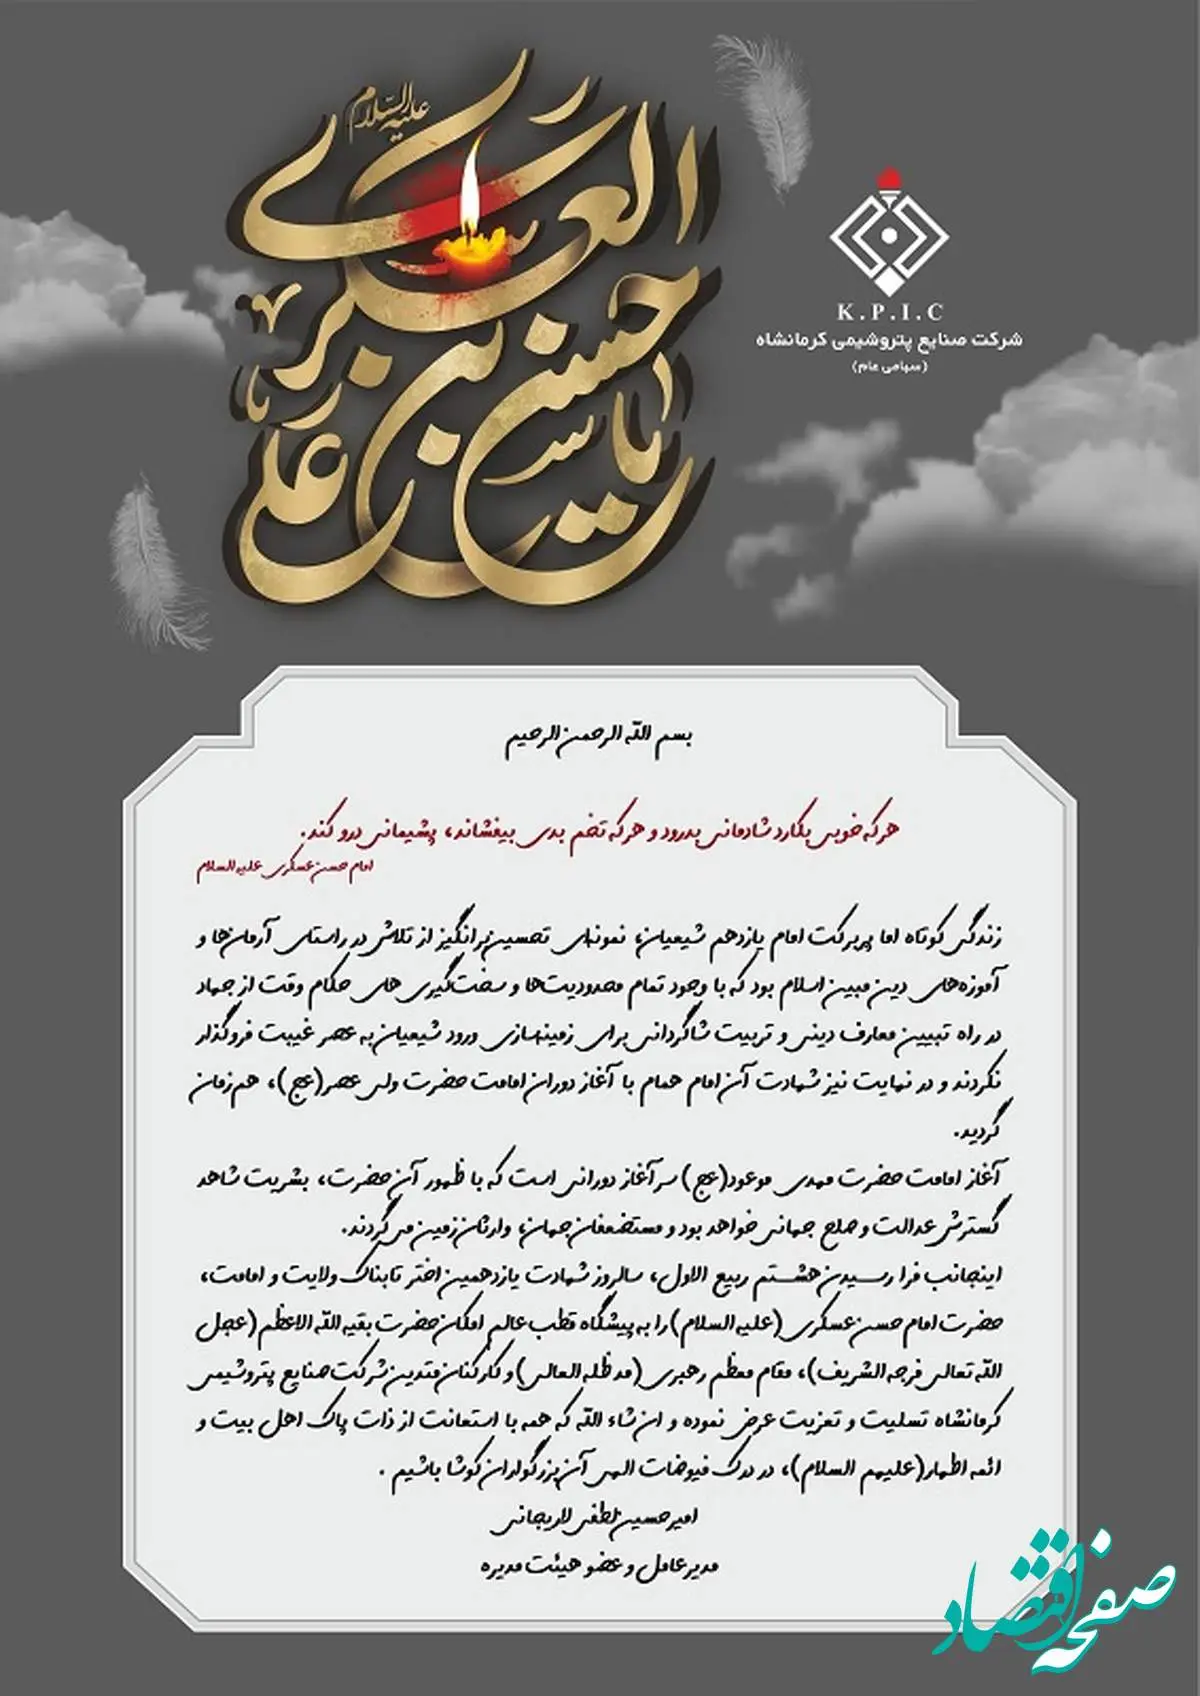 علیه السلام
یا حسن بن علی العسکری
K.P.I.C
شرکت صنایع پتروشیمی کرمانشاه
(سهامی عام)
بسم الله الرحمن الرحیم
هر که خوبی بکارد شادمانی بدرود و هر که تخم بدی بیفشاند، پشیمانی درو کند.
امام حسن عسکری علیه السلام
زندگی کوتاه اما پربرکت امام یازدهم شیعیان، نمونه‌ای تحسین‌برانگیز از تلاش در راستای آرمان‌ها و
آموزه‌های دین مبین اسلام بود که با وجود تمام محدودیت‌ها و سخت‌گیری های حکام وقت از جهاد
در راه تبیین معارف دینی و تربیت شاگردانی برای زمینه‌سازی ورود شیعیان به عصر غیبت فروگذار
نکردند و در نهایت نیز شهادت آن امام همام با آغاز دوران امامت حضرت ولی عصر(عج)، هم‌زمان
گردید.
آغاز امامت حضرت مهدی موعود(عج) سرآغاز دورانی است که با ظهور آن حضرت، بشریت شاهد
گسترش عدالت و صلح جهانی خواهد بود و مستضعفان جهان، وارثان زمین می‌گردند.
اینجانب فرا رسیدن هشتم ربیع الاول، سالروز شهادت یازدهمین اختر تابناک ولایت و امامت،
حضرت امام حسن عسکری (علیه السلام) را به پیشگاه قطب عالم امکان حضرت بقیه الله الاعظم (عجل
الله تعالی فرجه الشریف)، مقام معظم رهبری (مد ظله العالی) و کارکنان متدین شرکت صنایع پتروشیمی
کرمانشاه تسلیت و تعزیت عرض نموده و ان شاء الله که همه با استعانت از ذات پاک اهل بیت و
ائمه اطهار(علیهم السلام)، در درک فیوضات الهی آن بزرگواران کوشا باشیم .
امیرحسین لطفی لاریجانی
مدیر عامل و عضو هیئت مدیره
صفحه اقتصاد